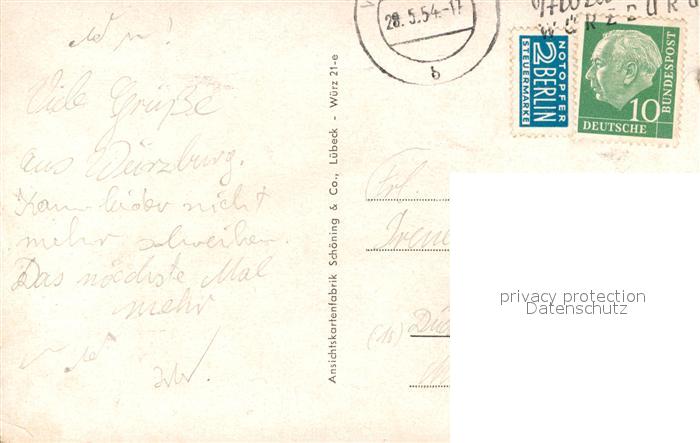 28.5.54.-17
b
WÜRZBURG
NOTOPFER
2 BERLIN
STEUERMARKE
10
DEUTSCHE
BUNDESPOST
Viele Grüße
aus Würzburg.
Kann leider nicht
mehr schreiben.
Das nächste Mal
mehr
Ansichtskartenfabrik Schöning & Co., Lübeck - Würz 21-e
Frl.
Irene
privacy protection
Datenschutz